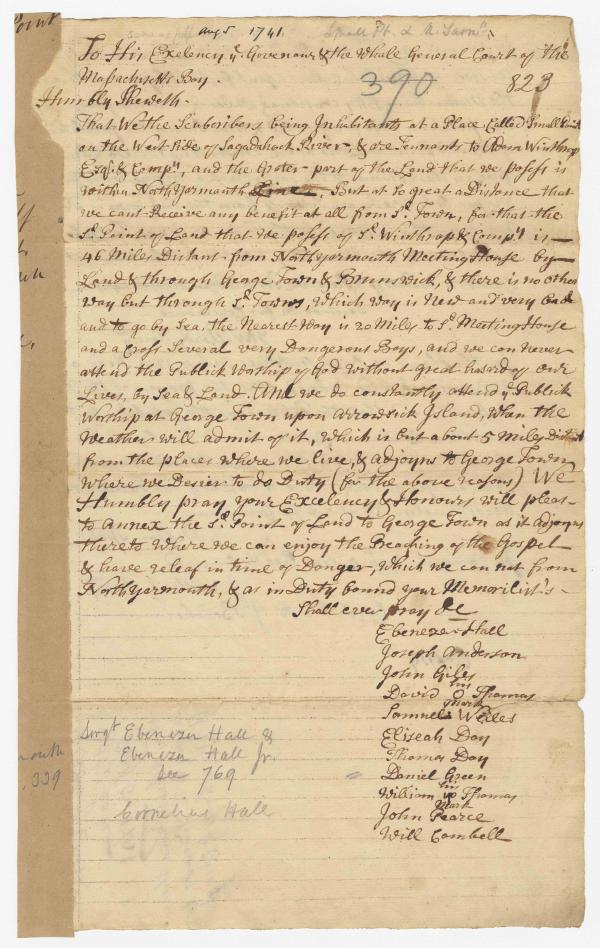 Point
augs 1741. Small Pt. &
To His Exelency ye Govenour & the Whole General Court of the
Massachusetts Bay.
390 823
Humbly Sheweth.
That We the Scubscribers being Inhabitants at a Place Called Small Point
on the West Side of Sagadahock River, & are Tennants to Adam Winthrop
Esqr. & Compy, and the Grater part of the Land that we posess is
within North Yarmouth Line. But at so great a Distance that
we cant Receive any benefit at all from sd. Town, for that the
sd. Point of Land that we posess of sd. Winthrop & Compy is
46 Miles Distant from North Yarmouth Meeting House by
Land & through George Town & Brunswick, & there is no other
way but through sd. Towns, Which way is New and very bade
and to go by Sea, the Nearest Way is 20 Miles to sd Meeting House
and a Cross Several very Dangerous Bays, and we can never
attend the Publick Worship of God without great hasard of our
Lives, by Sea & Land. And we do constantly attend ye Publick
Worship at George Town upon Arrowsick Island, When the
Weather will admit of it, which is but about 5 Miles Distant
from the places where we live, & adjoyns to George Town,
Where we Desier to do Duty (for the above reasons) We
Humbly pray your Excelency & Honours will pleas
to annex the sd. Point of Land to George Town as it Adjoyns
thereto Where we can enjoy the Preaching of the Gospel
& have releaf in time of Danger, Which we can not from
North Yarmouth, & as in Duty bound your Memorilist's
Shall ever pray &c
Ebenezer Hall
Joseph Anderson
John Giles
David his O mark Thomas
Samuel Welles
Eliseah Day
Thomas Day
Daniel Green
William his mark Thomas
John Pearce
Will Combell
Sergt Ebenezer Hall &
Ebenezer Hall Jr.
See 769
Cornelius Hall
mouth
339